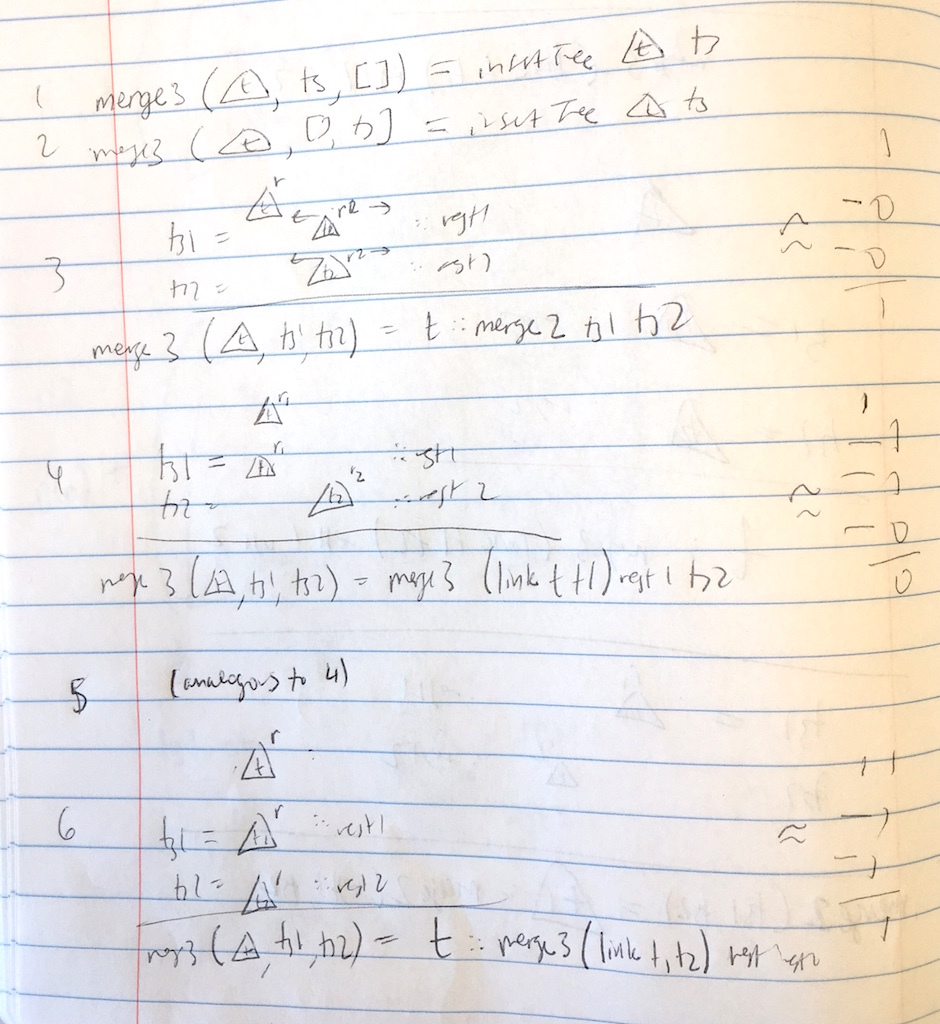 1 merge3 (t, ts, []) = insertTree t ts
2 merge3 (t, [], ts] = insertTree t ts
t r 1
ts1 = t1 r2 :: rest1 ≈ -0
3 ts2 = t2 r2 :: rest2 -0
merge 3 (t, ts1, ts2) = t :: merge2 ts1 ts2 1
t r1 1
4 ts1 = t1 r1 :: rest1 -1
ts2 = t2 r2 :: rest 2 ≈ -0
merge 3 (t, ts1, ts2) = merge3 (link t t1) rest 1 ts2 0
5 (analogous to 4)
t r 1 1
6 ts1 = t1 r :: rest1 ≈ -1
ts2 = t2 r :: rest2 -1
merge3 (t, ts1, ts2) = t :: merge3 (link t1 t2) rest1 rest2 1